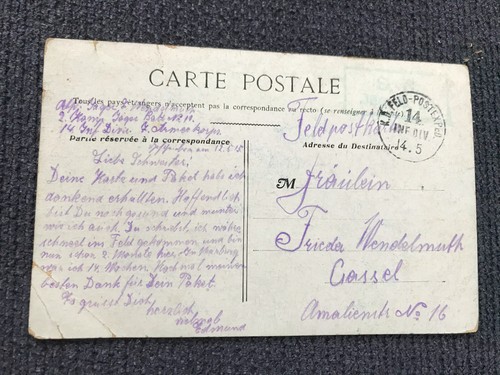 CARTE POSTALE
Tous les pays étrangers n'acceptent pas la correspondance au recto (se renseigner à la
Feldpostkarte
K.D. FELD-POSTEXPED
14
INF DIV
4.5
2. Komp. Jäger Batl. No 11.
14 Inf. Div. 7. Armeekorps
Partie réservée à la correspondance
Adresse du Destinataire
Liebe Schwester!
Deine Karte und Paket habe ich
dankend erhalten. Hoffendlich
bist Du noch gesund und munter
wie ich auch. Du
schnell ins Feld gekommen und bin
nun schon 2. Monate hier. In Marburg
war ich 14 Wochen. Noch mal meinen
besten Dank für Dein Paket.
Es grüsst Dich
herzlich
nochmals
Edmund
M Fräulein
Frieda Wendelmuth
Cassel
Amalienstr No 16